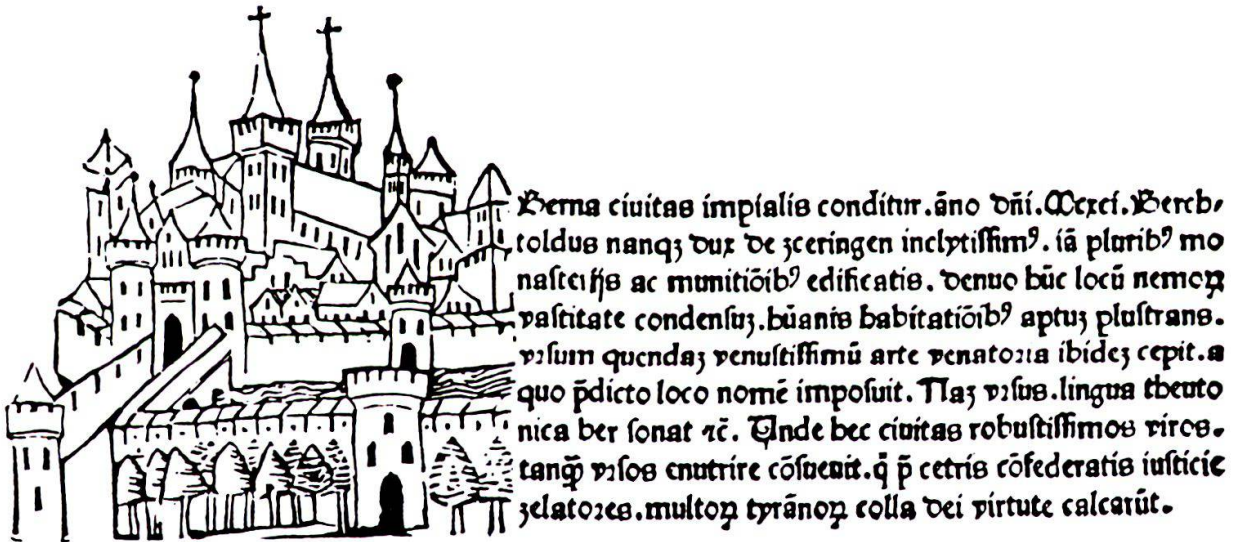 Berna ciuitas impialis conditur.āno dñi.Mcxci.Berch⸗
toldus nanqꝫ dux de zceringen inclytissimꝰ. iā pluribꝰ mo
nasterijs ac munitiōibꝰ edificatis. denuo hūc locū nemoꝝ
vastitate condensuꝫ.hūanis habitatiōibꝰ aptuꝫ plustrans.
vꝛsum quendaꝫ venustissimū arte venatoꝛia ibideꝫ cepit.a
quo p̄dicto loco nomē imposuit. Naꝫ vꝛsus.lingua theuto
nica ber sonat ⁊c̄. Unde hec ciuitas robustissimos viros.
tanqꝫ̄ vꝛsos enutrire cōsueuit.q̄ p̄ cetris cōfederatis iusticie
zelatoꝛes.multoꝝ tyrānoꝝ colla dei virtute calcarūt.